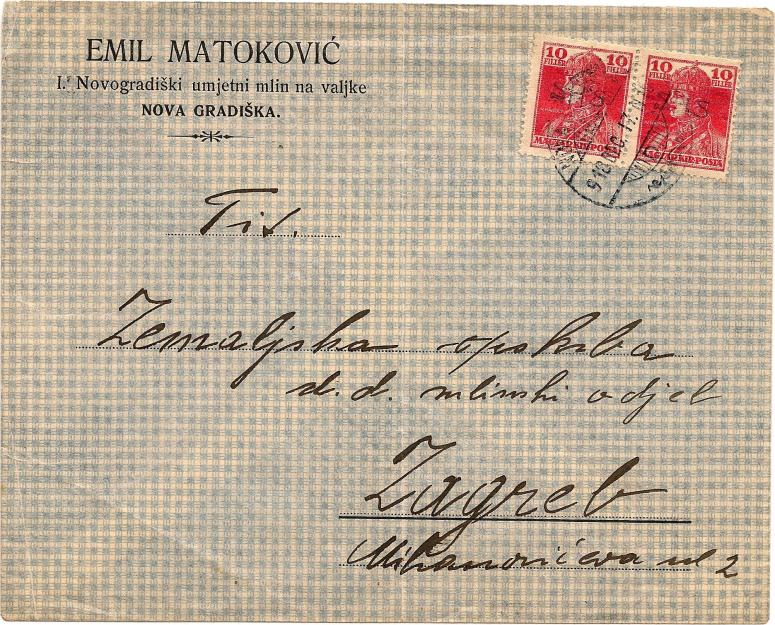 EMIL MATOKOVIĆ
I.ᵛⁱ Novogradiški umjetni mlin na valjke
NOVA GRADIŠKA.
10 FILLÉR 10
10 FILLÉR 10
MAGYAR KIR. POSTA
MAGYAR KIR. POSTA
Tit.
Zemaljska opskrba
d.d. mlinski odjel
Zagreb
Mihanovićeva ul 2